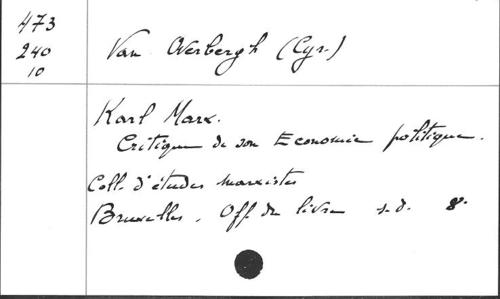 473
240
10
Van Overbergh (Cyr.)
Karl Marx.
Critique de son Economie politique.
Coll. d'études marxistes
Bruxelles, Off. du livre s.d. 8°.